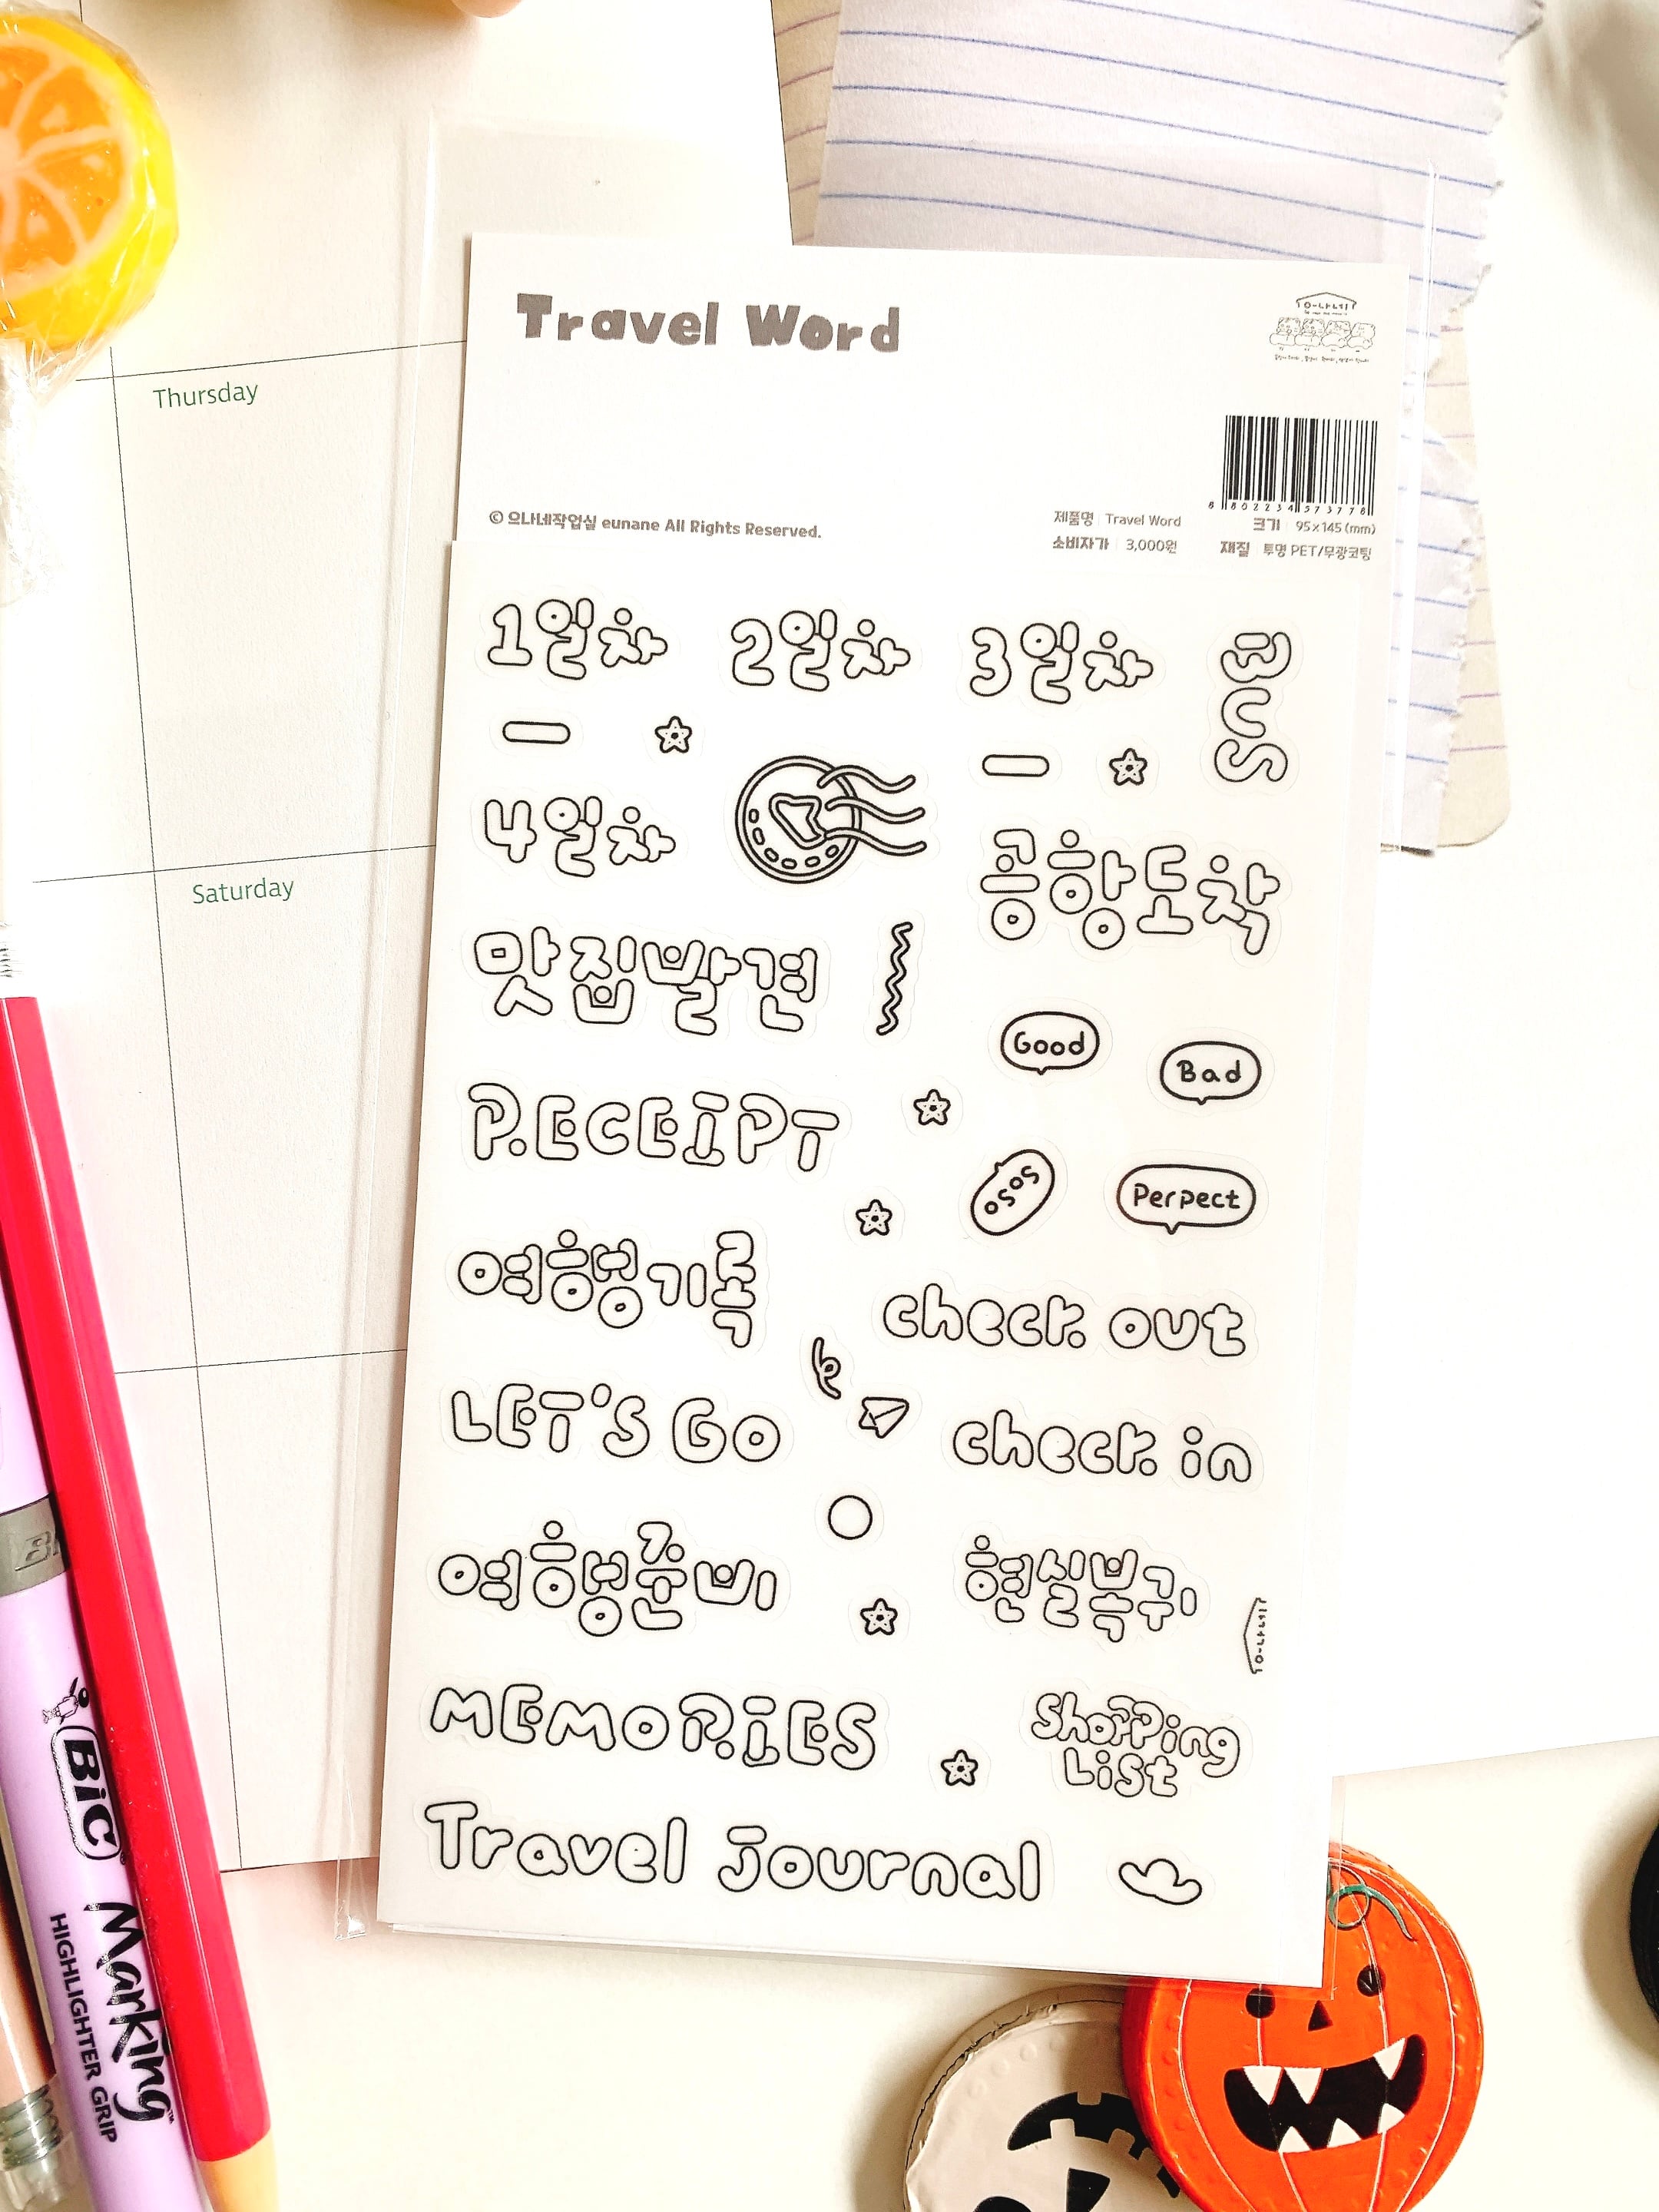 Travel Word
으나네
© 으나네작업실 eunane All Rights Reserved.
8 802234 573778
제품명 Travel Word
크기 95x145(mm)
소비자가 3,000원
재질 투명 PET/무광코팅
Thursday
Saturday
1일차
2일차
3일차
뽀너스
4일차
공항도착
맛집발견
Good
Bad
RECEIPT
soso
Perpect
여행기록
check out
LET'S GO
check in
여행준비
현실복귀
으나네
MEMORIES
Shopping
List
Travel Journal
BiC
Marking™
HIGHLIGHTER GRIP